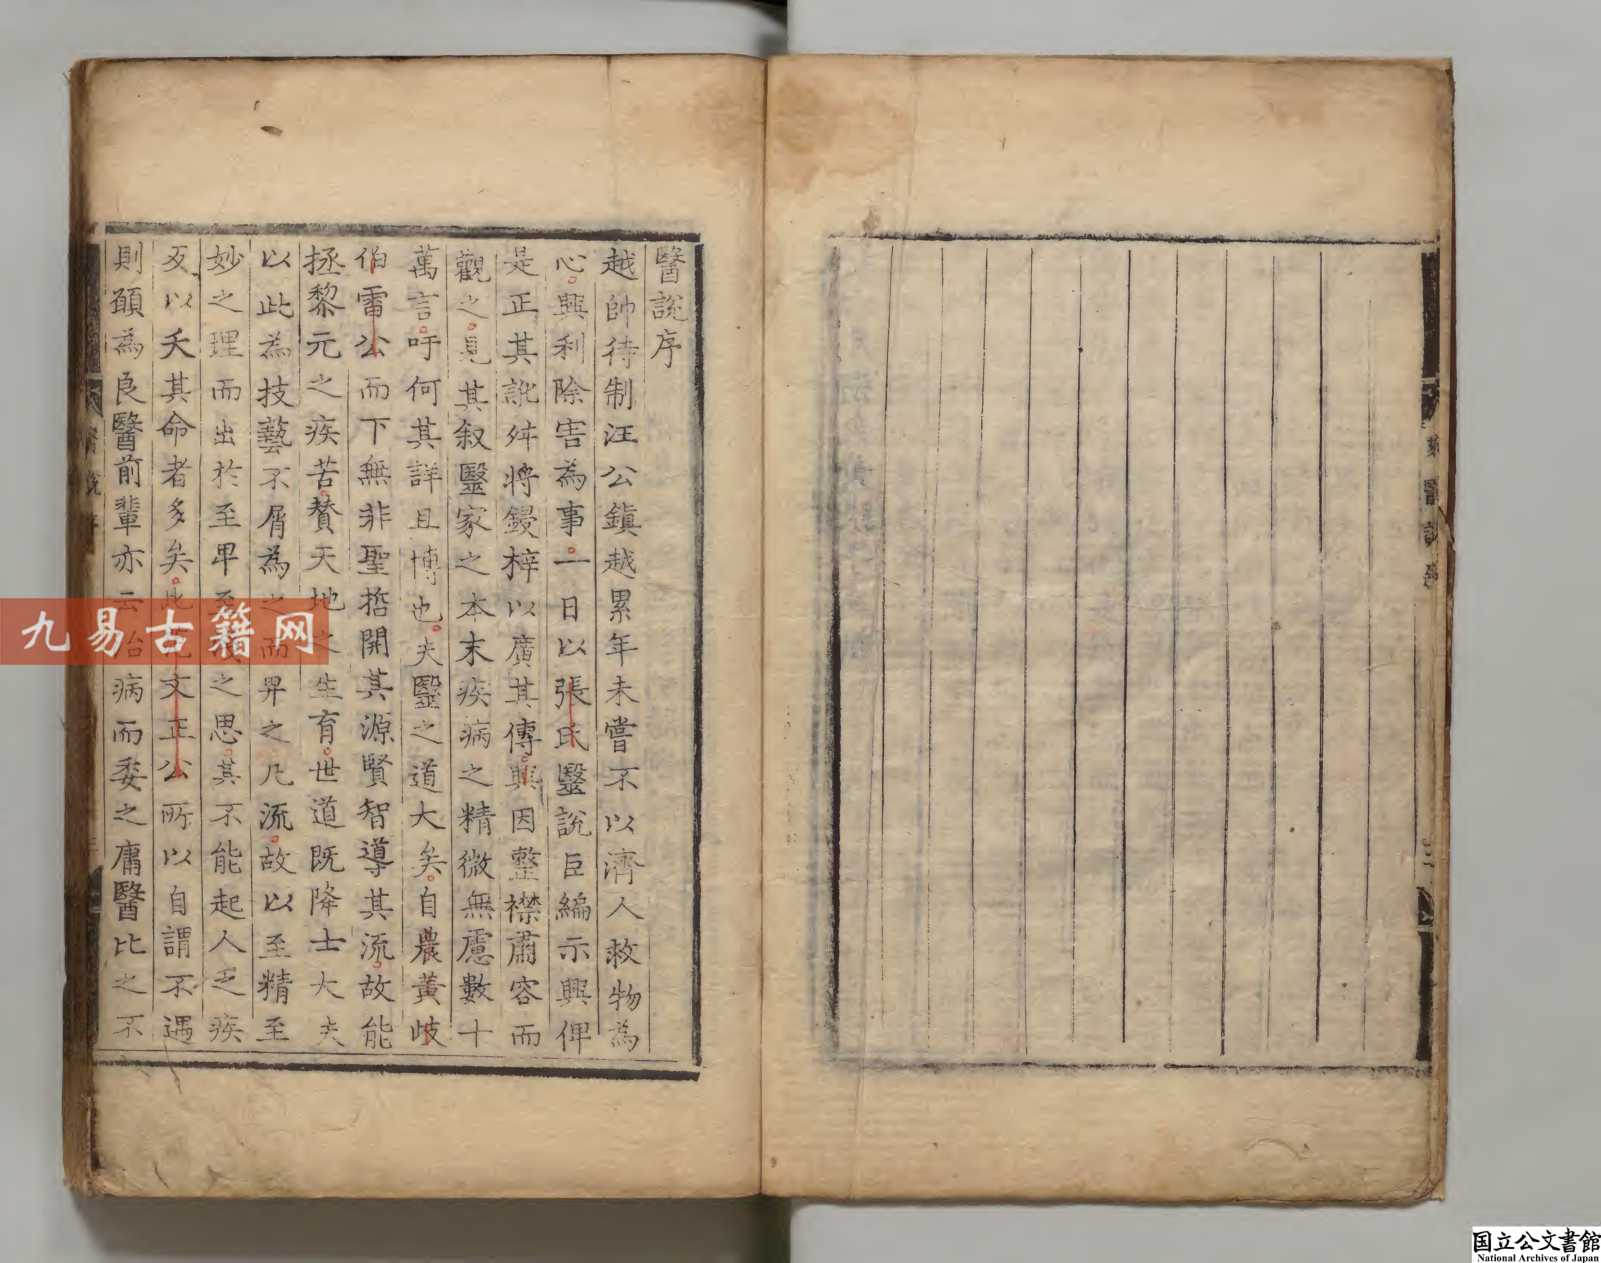 醫說序
越帥待制汪公鎮越累年未嘗不以濟人救物為
心興利除害為事一日以張氏醫說巨編示興俾
是正其訛舛將鋟梓以廣其傳興因整襟肅容而
觀之見其叙醫家之本末疾病之精微無慮數十
萬言吁何其詳且博也夫醫之道大矣自農黃歧
伯雷公而下無非聖哲開其源賢智導其流故能
拯黎元之疾苦贊天地之生育世道既降士大夫
以此為技藝不屑為之而畀之凡流故以至精至
妙之理而出於至卑至之思其不能起人之疾
反以夭其命者多矣此文正公所以自謂不遇
則願為良醫前輩亦云治病而委之庸醫比之不
醫說序
九易古籍网
国立公文書館
National Archives of Japan